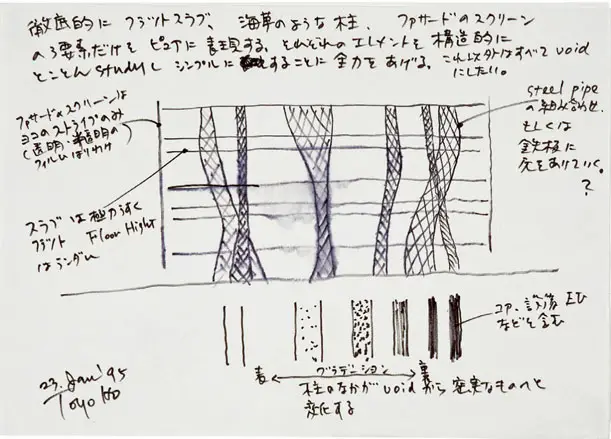 徹底的に フラットスラブ、 海草のような柱、 ファサードのスクリーン
の3要素だけを ピュアに表現する、それぞれのエレメントを構造的に
とことん studyし シンプルに することに全力をあげる。これ以外はすべて void
にしたい。
ファサードのスクリーンは
ヨコのストライプのみ
(透明・半透明の
フィルムはりわけ
スラブは極力うすく
フラット Floor Hight
はランダム
steel pipe
の組み合わせ、
もしくは
鉄板に
穴をあけていく。
?
コア、設備、EV
などを含む
表 グラデーション 裏
柱のなかが void から 密実なものへと
変化する
23. Jan' 95
Toyo Ito